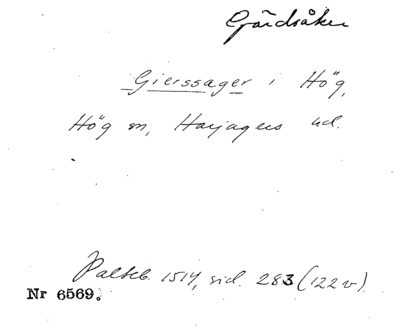 Gärdsåker
Gierssager i Hög,
Hög sn, Harjagers hd.
Palteb. 1514, sid. 283 (122 v).
Nr 6569.